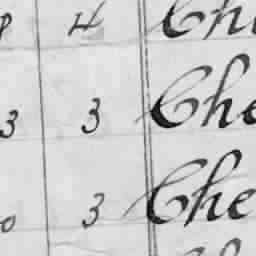 4 Ch
3 3 Che
0 3 Che